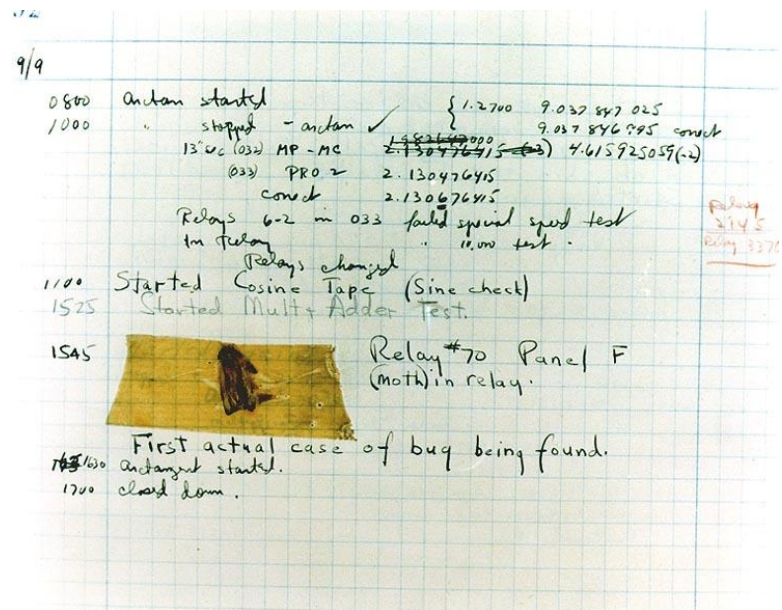 9/9
0800 antan started { 1.2700 9.037 847 025
1000 " stopped - antan ✓ 9.037 846 995 conect
13"uc (032) MP - MC 2.130476415 (-3) 4.615925059(-2)
(033) PRO 2 2.130476415
conect 2.130676415
Relays 6-2 in 033 failed special speed test
In Relay " 10,000 test.
Relays changed
Relay
2145
Relay 3370
1100 Started Cosine Tape (Sine check)
1525 Started Mult + Adder Test.
1545 Relay #70 Panel F
(moth) in relay.
First actual case of bug being found.
1630 arctangent started.
1700 closed down.